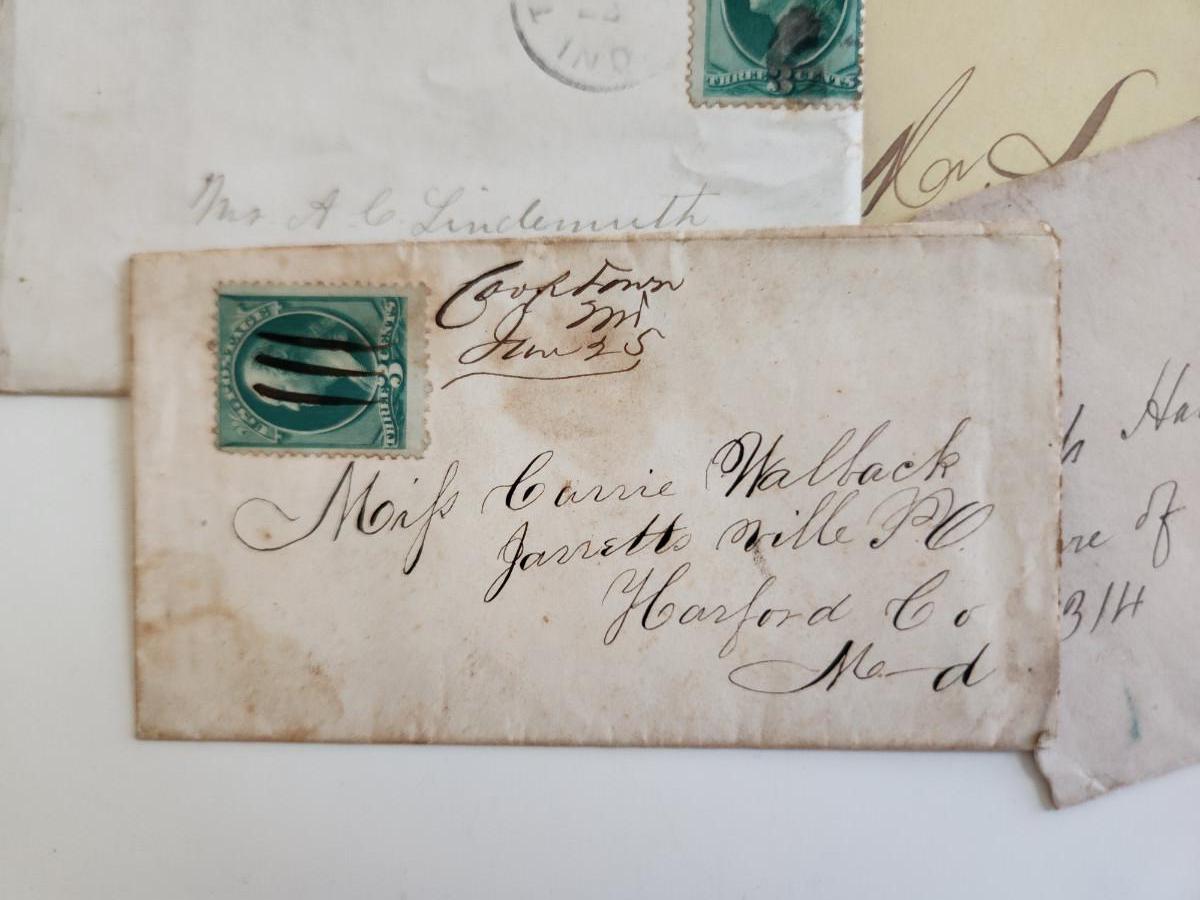 IND
THREE 3 CENTS
Mr. S
Mrs A C Lindemuth
U.S. POSTAGE
THREE 3 CENTS
Cooktown
Jan 25
Miss Carrie Walback
Jarretts ville P.O.
Harford Co
Md
Ha
re of
314